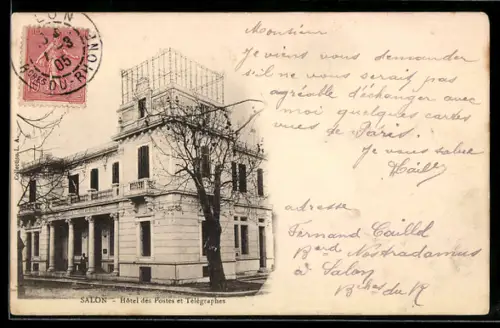 SALON
9
05
BCHES-DU-RHÔNE
Monsieur
Je viens vous demander
s'il ne vous serait pas
agréable d'échanger avec
moi quelques cartes
vues de Paris.
Je vous salue
adresse
Fernand Caillol
Bard Nostradamus
à Salon
Bches du R
SALON - Hôtel des Postes et Télégraphes